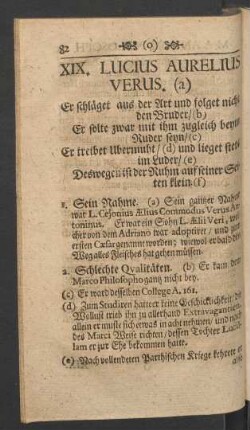 82 (o)
XIX. LUCIUS AURELIUS
VERUS. (a)
Er schläget aus der Art und folget nicht
den Bruder/(b)
Er solte zwar mit ihm zugleich beym
Ruder seyn/(c)
Er treibet Ubermuht/(d) und lieget stets
im Luder/(e)
Deswegen ist der Ruhm auf seiner Sei-
ten klein.(f)
1. Sein Nahme. (a) Sein gantzer Nahme
war L. Cejonius Ælius Commodus Verus An-
toninus. Er war ein Sohn L. Ælii Veri, wel-
cher von dem Adriano war adoptiret / und zum
ersten Cæsar genannt worden; wiewol er bald den
Weg alles Fleisches hat gehen müssen.
2. Schlechte Qvalitäten. (b) Er kam dem
Marco Philosopho gantz nicht bey.
(c) Er ward desselben College A. 161.
(d) Zum Studiren hatte er keine Geschicklichkeit; die
Wollust trieb ihn zu allerhand Extravagantien
allein er muste sich etwas in acht nehmen / und nach
des Marci Weise richten / dessen Tochter Lucil-
lam er zur Ehe bekommen hatte.
(e) Nach vollendetem Parthischen Kriege kehrete er